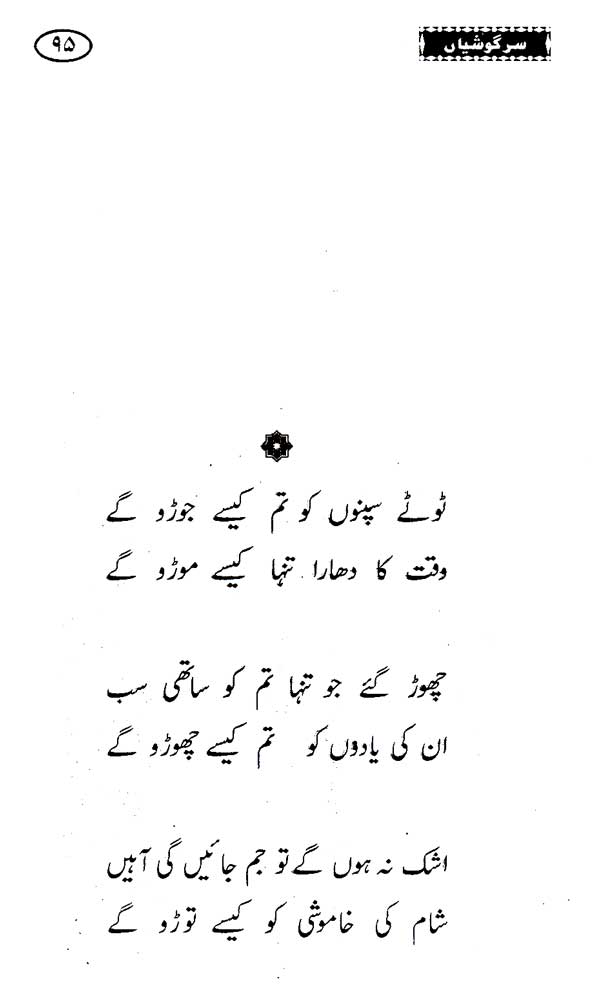 سرگوشیاں
۹۵
ٹوٹے سپنوں کو تم کیسے جوڑو گے
وقت کا دھارا تنہا کیسے موڑو گے
چھوڑ گئے جو تنہا تم کو ساتھی سب
ان کی یادوں کو تم کیسے چھوڑو گے
اشک نہ ہوں گے تو جم جائیں گی آہیں
شام کی خاموشی کو کیسے توڑو گے